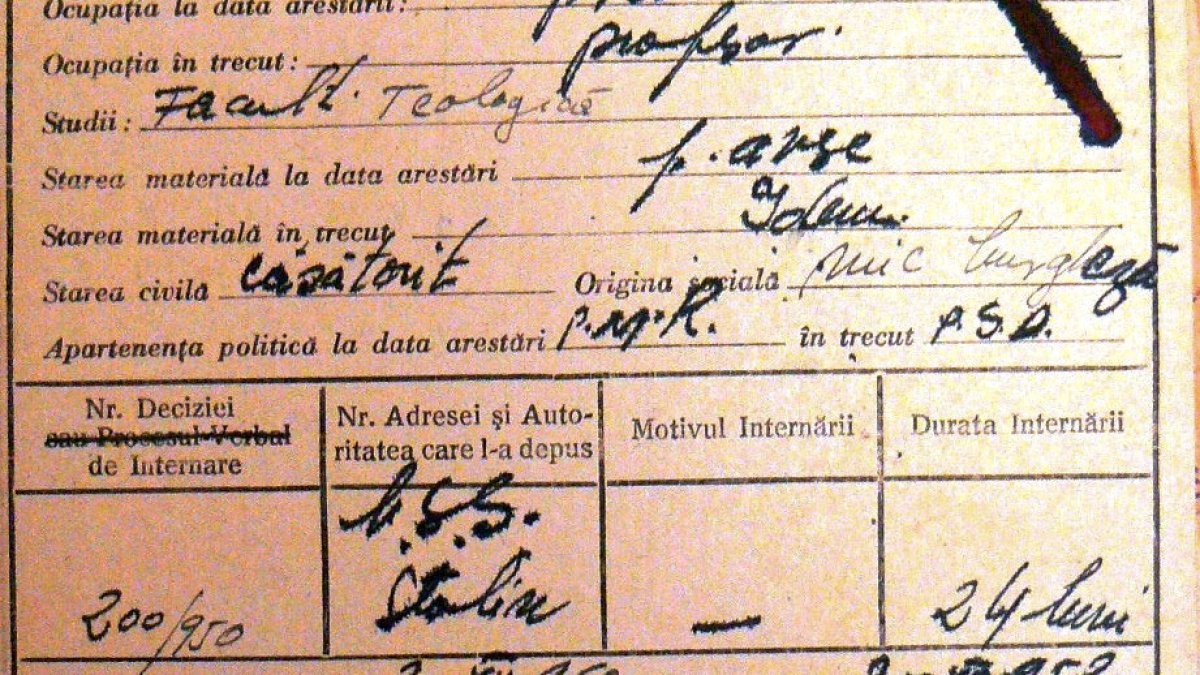 Ocupația la data arestării:
Ocupația în trecut: profesor.
Studii: Facult. Teologică
Starea materială la data arestări f. avere
Starea materială în trecut Idem
Starea civilă căsătorit Origina socială mic burgheză
Apartenența politică la data arestări P.M.R. în trecut P.S.D.
Nr. Deciziei
sau Procesul-Verbal
de Internare
Nr. Adresei și Auto-
ritatea care l-a depus
Motivul Internării
Durata Internării
200/950
Stalin
—
24 luni